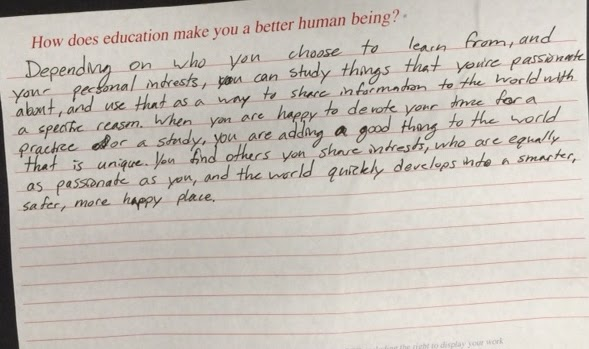 How does education make you a better human being?
Depending on who you choose to learn from, and
your personal intrests, you can study things that you're passionate
about, and use that as a way to share information to the world with
a specific reason. When you are happy to devote your time for a
practice or a study, you are adding a good thing to the world
that is unique. You find others you share intrests, who are equally
as passionate as you, and the world quickly develops into a smarter,
safer, more happy place.
the right to display your work